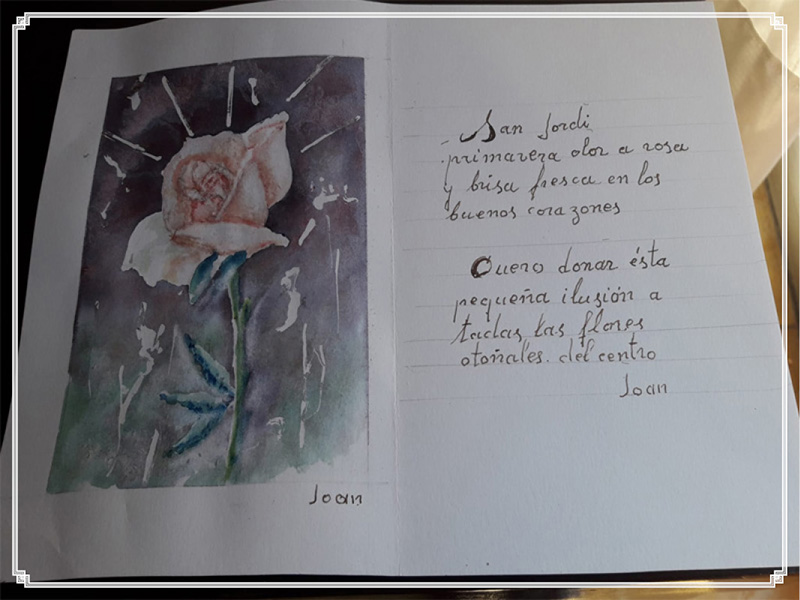 San Jordi
primavera olor a rosa
y brisa fresca en los
buenos corazones
Quero donar ésta
pequeña ilusión a
tadas las flores
otoñales. del centro
Joan
Joan